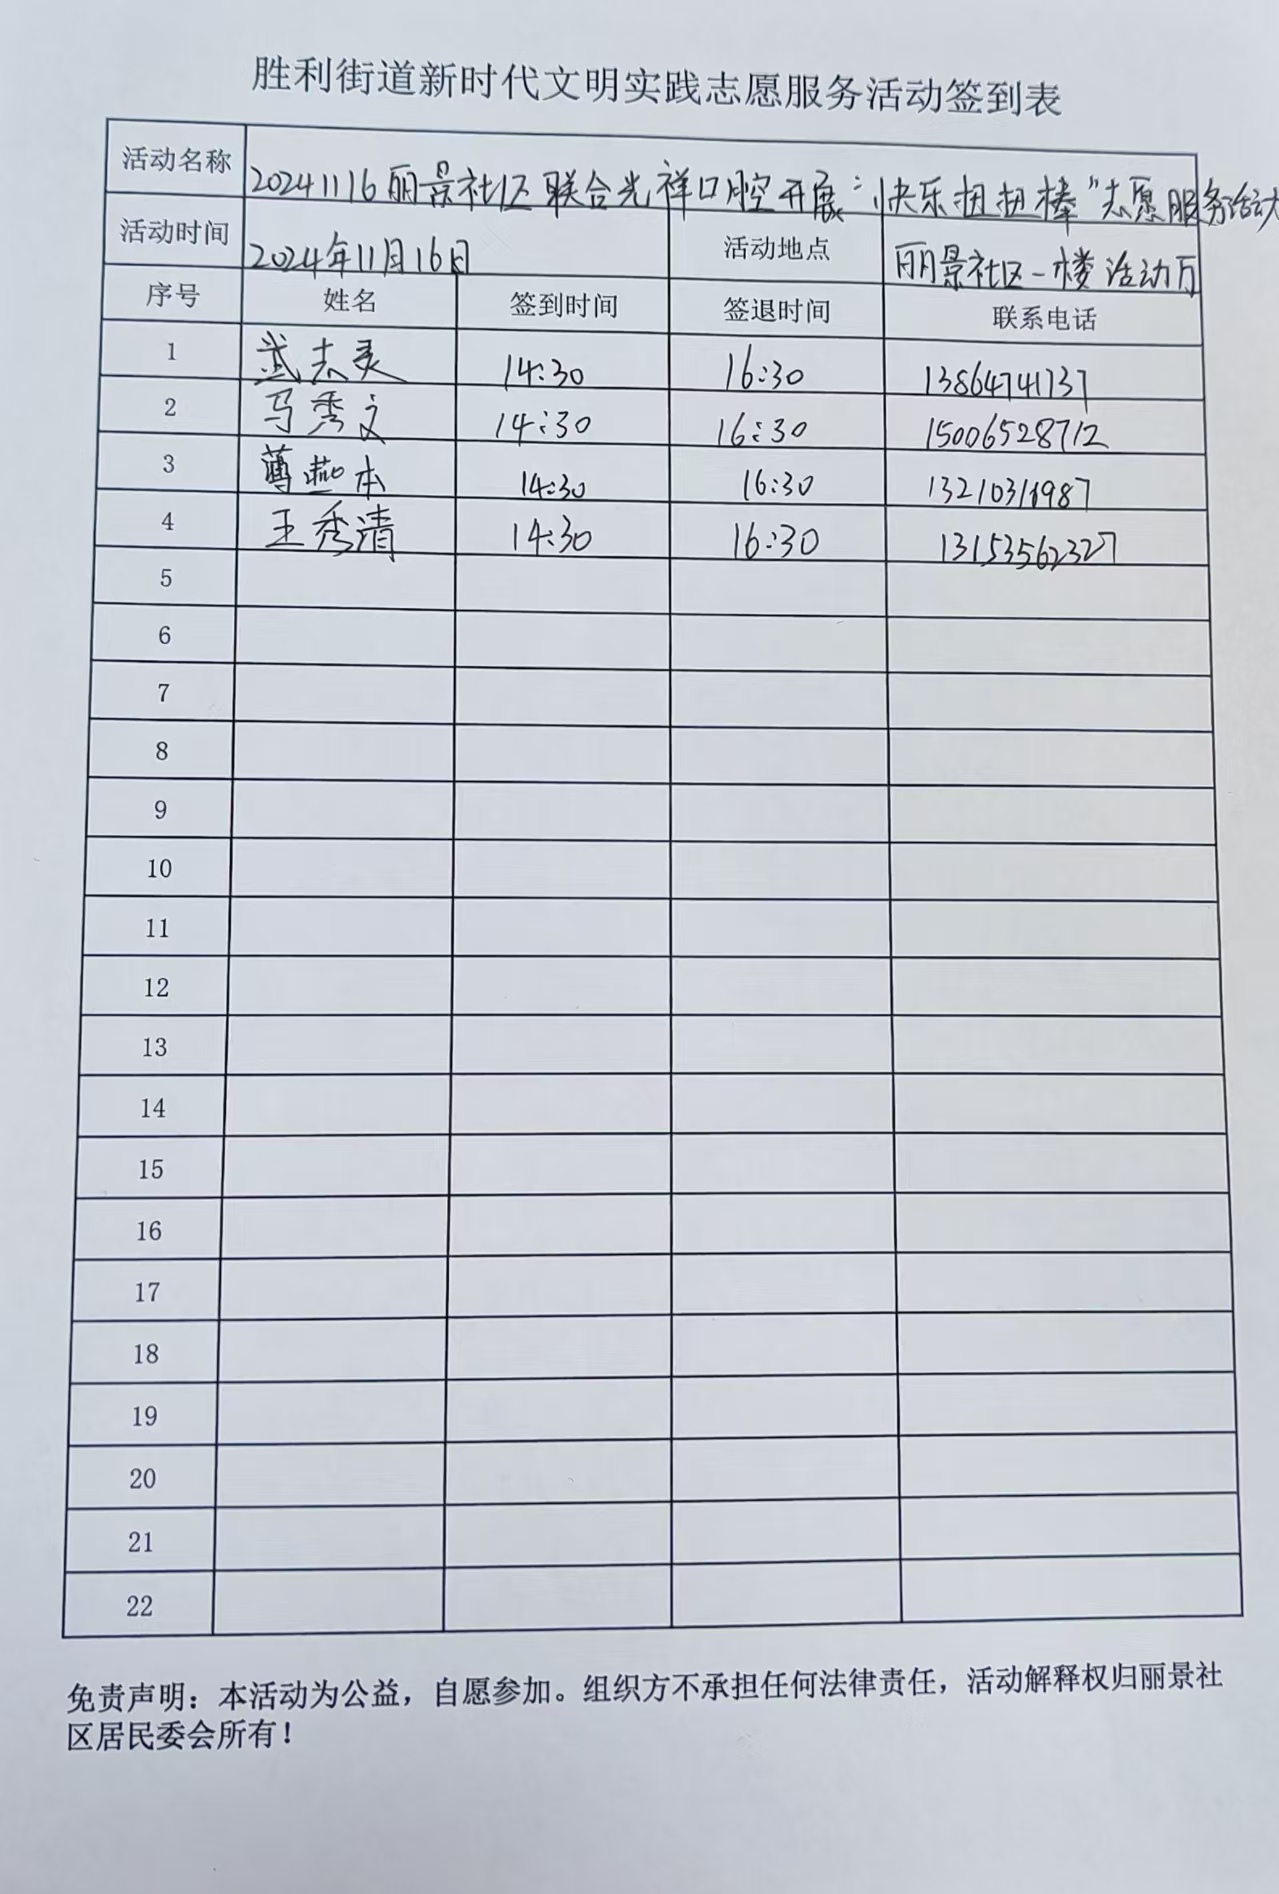 胜利街道新时代文明实践志愿服务活动签到表
活动名称 20241116丽景社区联合光祥口腔开展“快乐扭扭棒”志愿服务活动
活动时间 2024年11月16日 活动地点 丽景社区一楼活动
序号 姓名 签到时间 签退时间 联系电话
1 武志灵 14:30 16:30 13864741737
2 马秀文 14:30 16:30 15006528712
3 本 14:30 16:30
4 王秀清 14:30 16:30 13153562327
5
6
7
8
9
10
11
12
13
14
15
16
17
18
19
20
21
22
免责声明：本活动为公益，自愿参加。组织方不承担任何法律责任，活动解释权归丽景社
区居民委会所有！